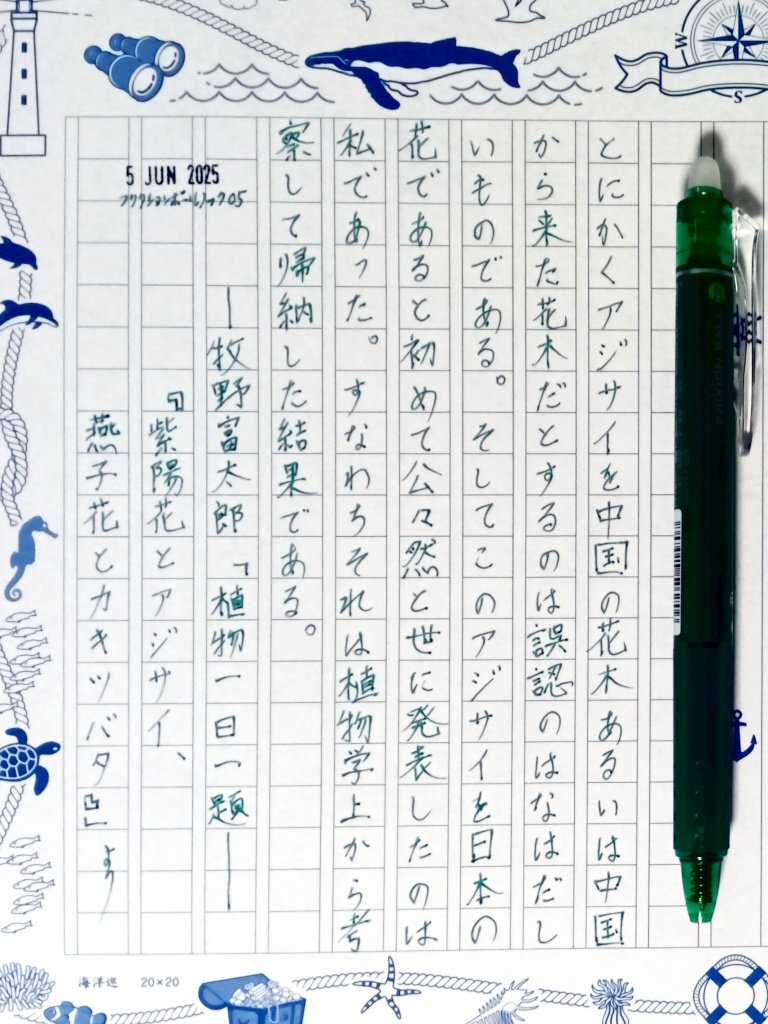 とにかくアジサイを中国の花木あるいは中国
から来た花木だとするのは誤認のはなはだし
いものである。そしてこのアジサイを日本の
花であると初めて公々然と世に発表したのは
私であった。すなわちそれは植物学上から考
察して帰納した結果である。
―牧野富太郎『植物一日一題―
『紫陽花とアジサイ、
燕子花とカキツバタ』』より
5 JUN 2025
フリクションボールノック05
海洋巡 20×20
W
S
FRIXION BALL